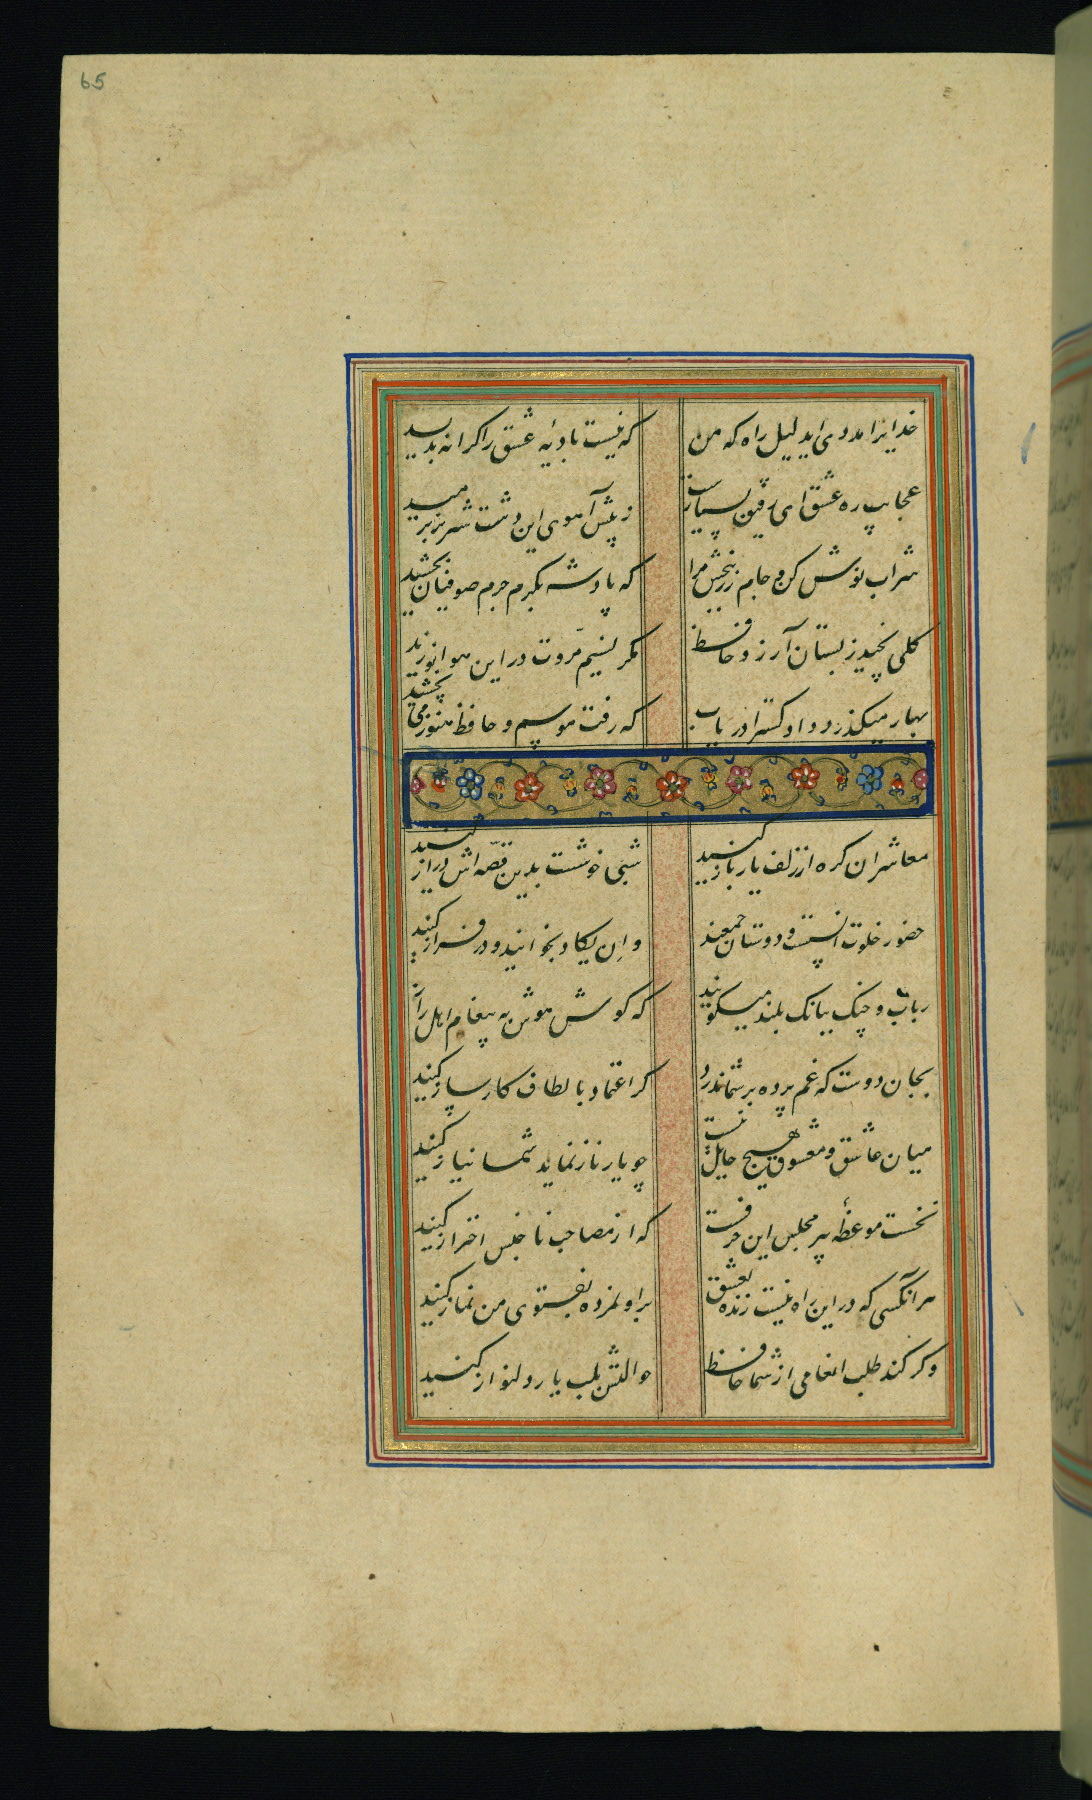 65
خدایرا مددی ایدلیل راه که من که نیست بادیهٔ عشق را کرانه پدید
عجایب ره عشق ای رفیق بسیارست ز پیش آهوی این دشت شیر نر برمید
شراب نوش کن و جام زر بخش مرا که پادشه بکرم جرم صوفیان بخشید
کلی نچید ز بستان آرزو حافظ مکر نسیم مروّت در این هوا نوزید
بهار میکذرد داد کسترا دریاب که رفت موسم و حافظ هنوز می نچشید
معاشران کره از زلف یار باز کنید شبی خوشست بدین قصّه اش دراز کنید
حضور خلوت انسست و دوستان جمعند و اِن یکاد بخوانید و در فراز کنید
رباب و چنک ببانک بلند میکویند که کوش هوش به پیغام اهل راز
بجان دوست که غم پرده بر شما ندرد کر اعتماد بالطاف کارساز کنید
میان عاشق و معشوق هیچ حایل نیست چو یار ناز نماید شما نیاز کنید
نخست موعظهٔ پیر مجلس این حرفست که از مصاحب ناجنس احتراز کنید
هر آنکسی که در این راه نیست زنده بعشق بر او نمرده بفتوی من نماز کنید
وکر کند طلب انعامی از شما حافظ حوالتش بلب یار دلنواز کنید